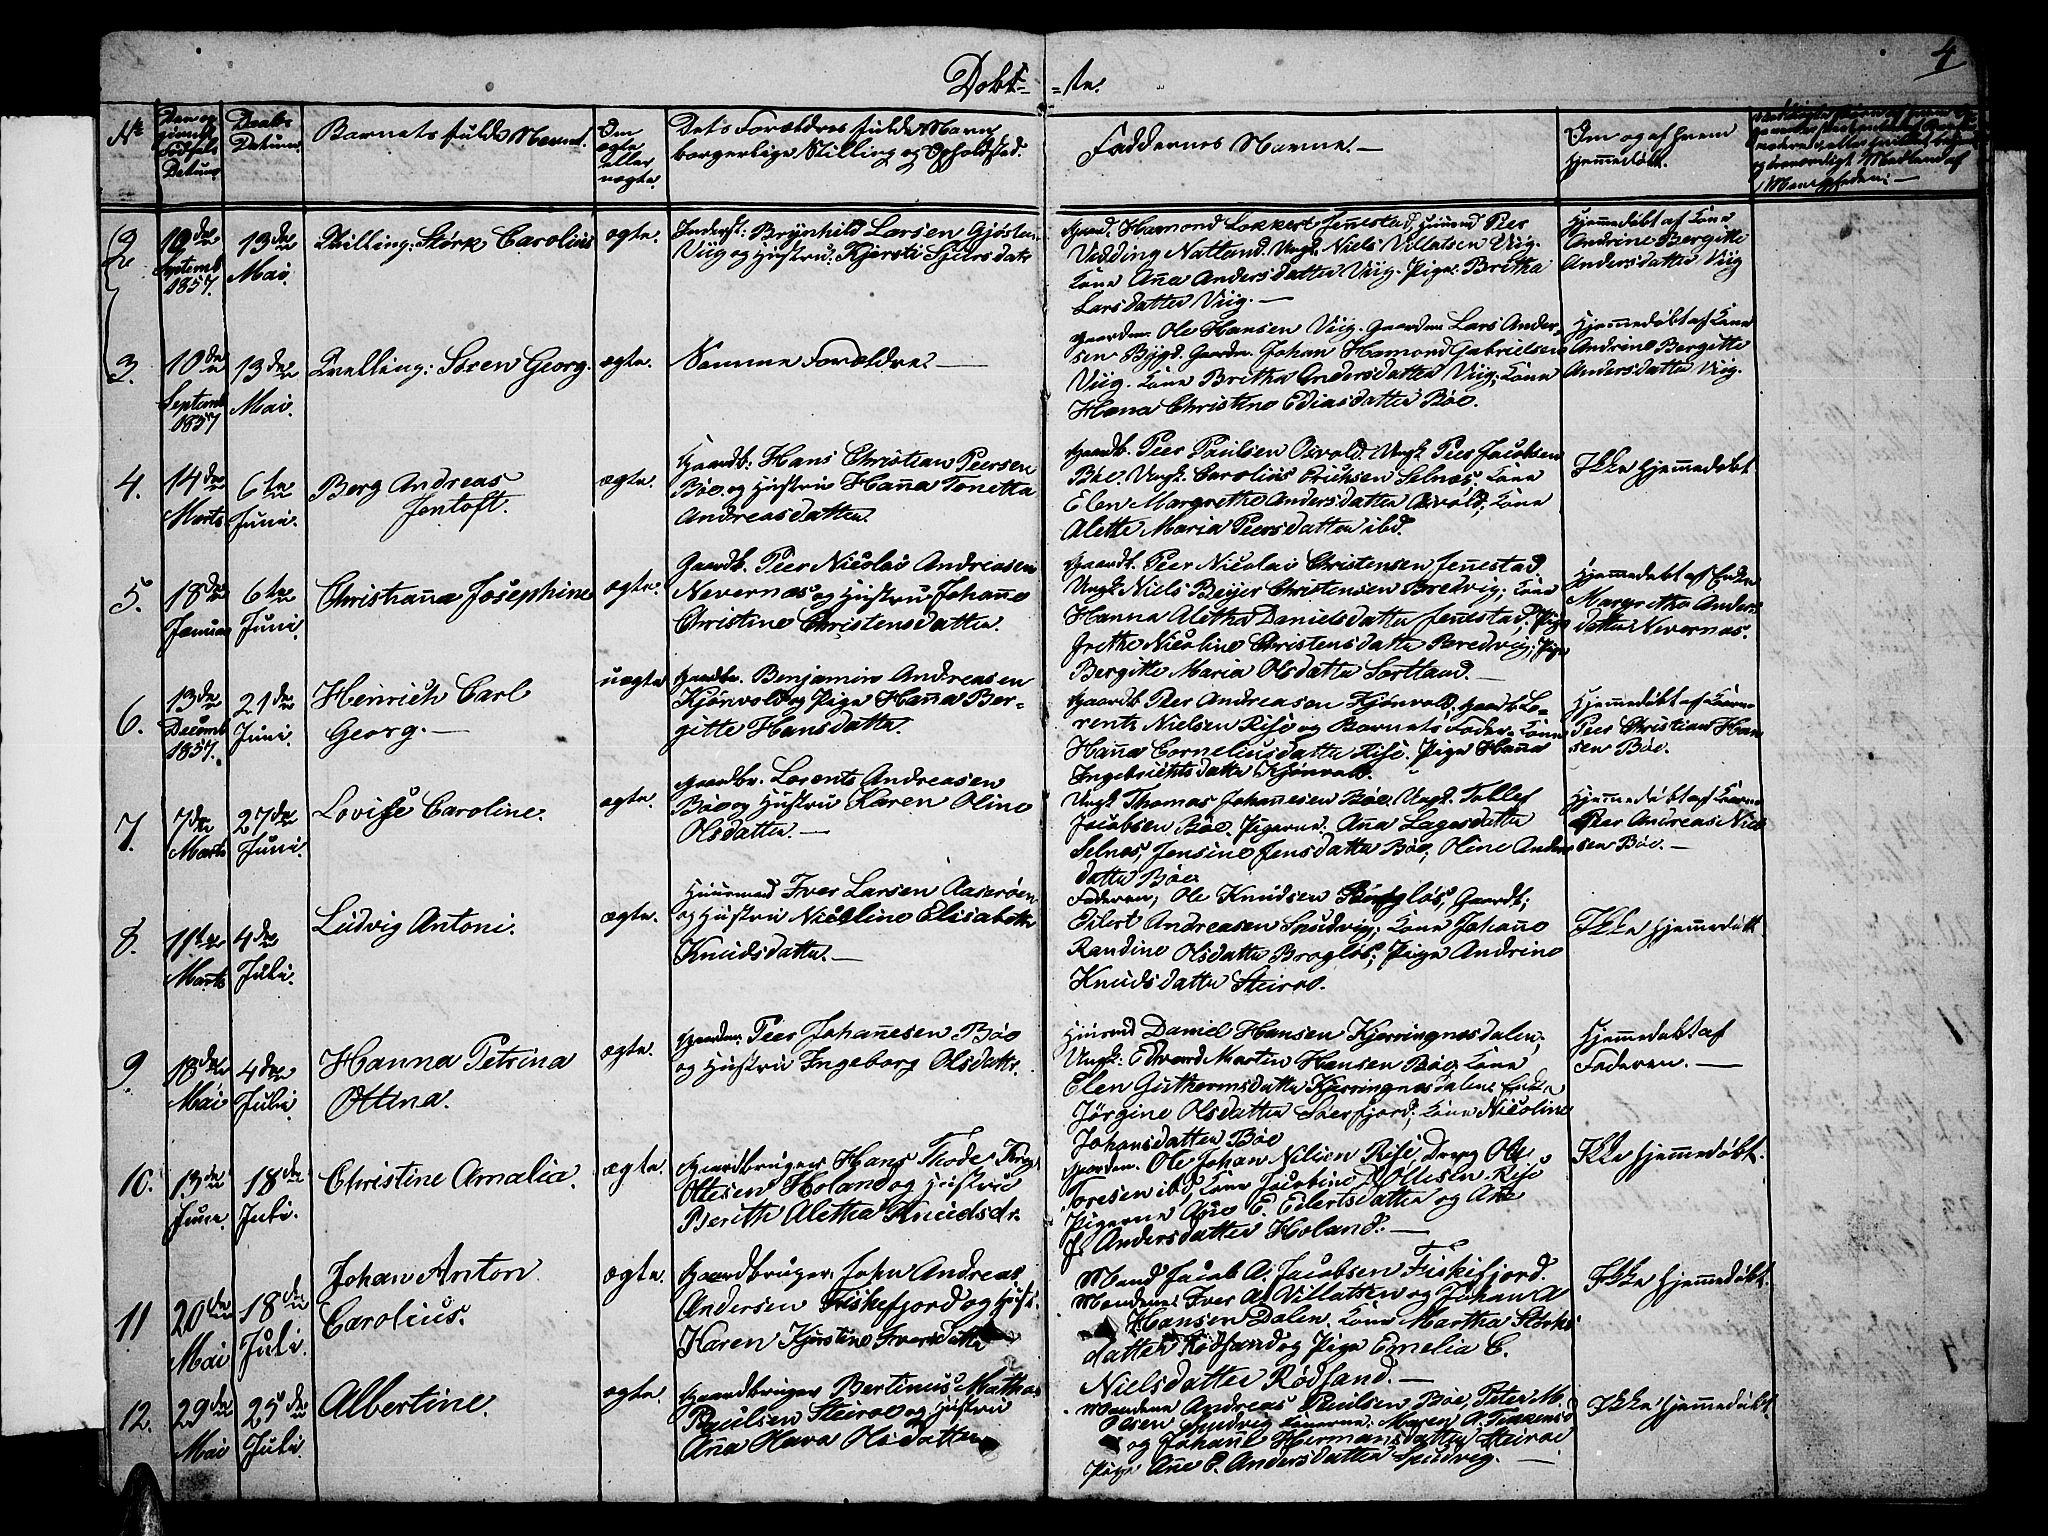 4
Døbte.
No
Den og
Fødsels
Datum
Daabs
Datum.
Barnets fulde Navne.
Om
ægte
eller
uægte.
Dets Forældres fulde Navn
borgerlige Stilling og Opholdsted.
Faddernes Navne.
Om og af hvem
hjemmedøbt.
Menigheden.
2
10de
Septemb
1857.
13de
Mai.
Tvilling: Størk Carolius
ægte.
Inderst: Brynhild Larsen
Viig og Hustru: Kjersti Sjursdatt
Hamond Lokkert Jennestad, Huusmd Peer
Vedding Natland. Ungk. Niels Villatsen Viig.
Kone Aña Andersdatter Viig. Pige: Britha
Larsdatter Viig.
Hjemmedøbt af Kone
Andrine Bergitte
Andersdatter Viig
3.
10de
Septemb
1857
13de
Mai.
Tvelling: Søren Georg.
ægte.
Samme Forældre.
Gaardm. Ole Hansen Viig. Gaardm Lars Ander-
sen Bygd. Gaardm. Johan Hamond Gabrielsen
Viig. Kone Britha Andersdatter Viig; Kone
Hana Christine Ediasdatter Bøe.
Hjemmedøbt af Kone
Andrine Bergitte
Andersdatter Viig.
4.
14de
Marts
6te
Juni.
Berg Andreas
Jentoft.
ægte.
Gaardb: Hans Christian Peersen
Bøe og Hustru Haña Tonetta
Andreasdatter.
Gaardb. Peer Paulsen Osvold. Ungk Peer Jacobsen
Bøe. Ungk. Carolius Erichsen Selnæs, Kone
Elen Margrethe Andersdatter Osvold, Kone
Alette Maria Peersdatter ibd.
Ikke Hjemmedøbt
5.
18de
Januar
6te
Juni.
Christiaña Josephine
ægte.
Gaardb. Peer Nicolai Andreasen
Nevernæs og Hustru Johanne
Christine Christensdatter.
Gaardb. Peer Nicolai Christensen Jennestad
Ungk Niels Beyer Christensen Bredvig; Kone
Hanna Aletha Danielsdatter Jennestad, Pige
Grethe Nicoline Christensdatter Bredvig; Pige
Bergitte Maria Olsdatter Sortland.
Hjemmedøbt af Enke
Margretha Anders
datter Nevernæs.
6.
13de
Decemb
1857.
21de
Juni.
Heinrich Carl
Georg.
uægte
Gaardbr. Benjamin Andreasen
Kjørvold og Pige Haña Ber-
gitte Hansdatter.
Gaardb Peer Andreasen Kjønvold, Gaardb Lo-
rents Nielsen Risø og Barnets Fader. Kone
Haña Corneliusdatter Risø. Pige Haña
Ingebrichtsdatter Kjønvold.
Hjemmedøbt af
Peer Christian Han
sen Bøe.
7.
7de
Marts
27de
Juni.
Lovise Caroline.
ægte.
Gaardbr. Lorents Andreasen
Bøe og Hustru Karen Oline
Olsdatter.
Ungk. Thomas Johañesen Bøe. Ungk. Tollef
Jacobsen Bøe. Pigerne. Aña Lagesdatter
Selnes, Jensine Jensdatter Bøe; Oline Anders
datter Bøe.
Hjemmedøbt af
Peer Andreas Niel
sen Bøe.
8.
11te
Marts
4de
Juli.
Ludvig Antoni.
ægte.
Huusmad Iver Larsen Aaserøen
og Hustru Nicoline Elisabeth
Knudsdatter.
Faderen; Ole Knudsen Brogløs, Gaardb;
Eilert Andreasen Spudvig; Kone Johanne
Randine Olsdatter Brogløs; Pige Andrine
Knudsdatter Steiroe.
Ikke Hjemmedøbt
9.
18de
Mai
4de
Juli.
Hanna Petrina
Ottina.
ægte.
Gaardm. Peer Johañesen Bøe
og Hustru Ingeborg Olsdattr.
Huusmd Daniel Hansen Kjerringnesdalen;
Ungk: Edvard Martin Hansen Bøe, Kone
Elen Guthormsdatter Kjerringnesdalen, Enke
Jørgine Olsdatter Skerfjord; Kone Nicoline
Johansdatter Bøe
Hjemmedøbt af
Faderen.
10.
13de
Juni.
18de
Juli.
Christine Amalia.
ægte.
Gaardbruger Hans Thode
Ottesen Holand og Hustru
Berith Aletha Knudsdr.
Gaardm. Ole Johan Nilsen Risø, Dreng Ole
Toresen ibd, Kone Jacobine Ottesen Risø
Pigerne Ane E. Eilertsdatter og Ane
J. Andersdatter Holand.
Ikke Hjemmedøbt.
11
20de
Mai
18de
Juli.
Johan Anton
Carolius.
ægte.
Gaardbruger. John Andreas
Andersen Fiskefjord og Hust.
Karen Kjerstine Iversdatter
Mand Jacob A. Jacobsen Fiskefjord.
Mændene: Iver A. Villatsen og Johan A
Hansen Dalen. Kone Martha Størks
datter Rødsand og Pige Emelia C.
Nielsdatter Rødsand.
Ikke Hjemmedøbt.
12.
29de
Mai
25de
Juli.
Albertine.
ægte.
Gaardbruger Bertinus Mathias
Paulsen Steiroe og Hustru
Aña Olava Olsdatter
Mændene Andreas Paulsen Bøe, Peter M.
Olsen Spudvig Konerne: Maren A.
og Johañe Hermansdatter Steiroe
Pige Ane E. Andersdatter Spudvig.
Ikke Hjemmedøbt.